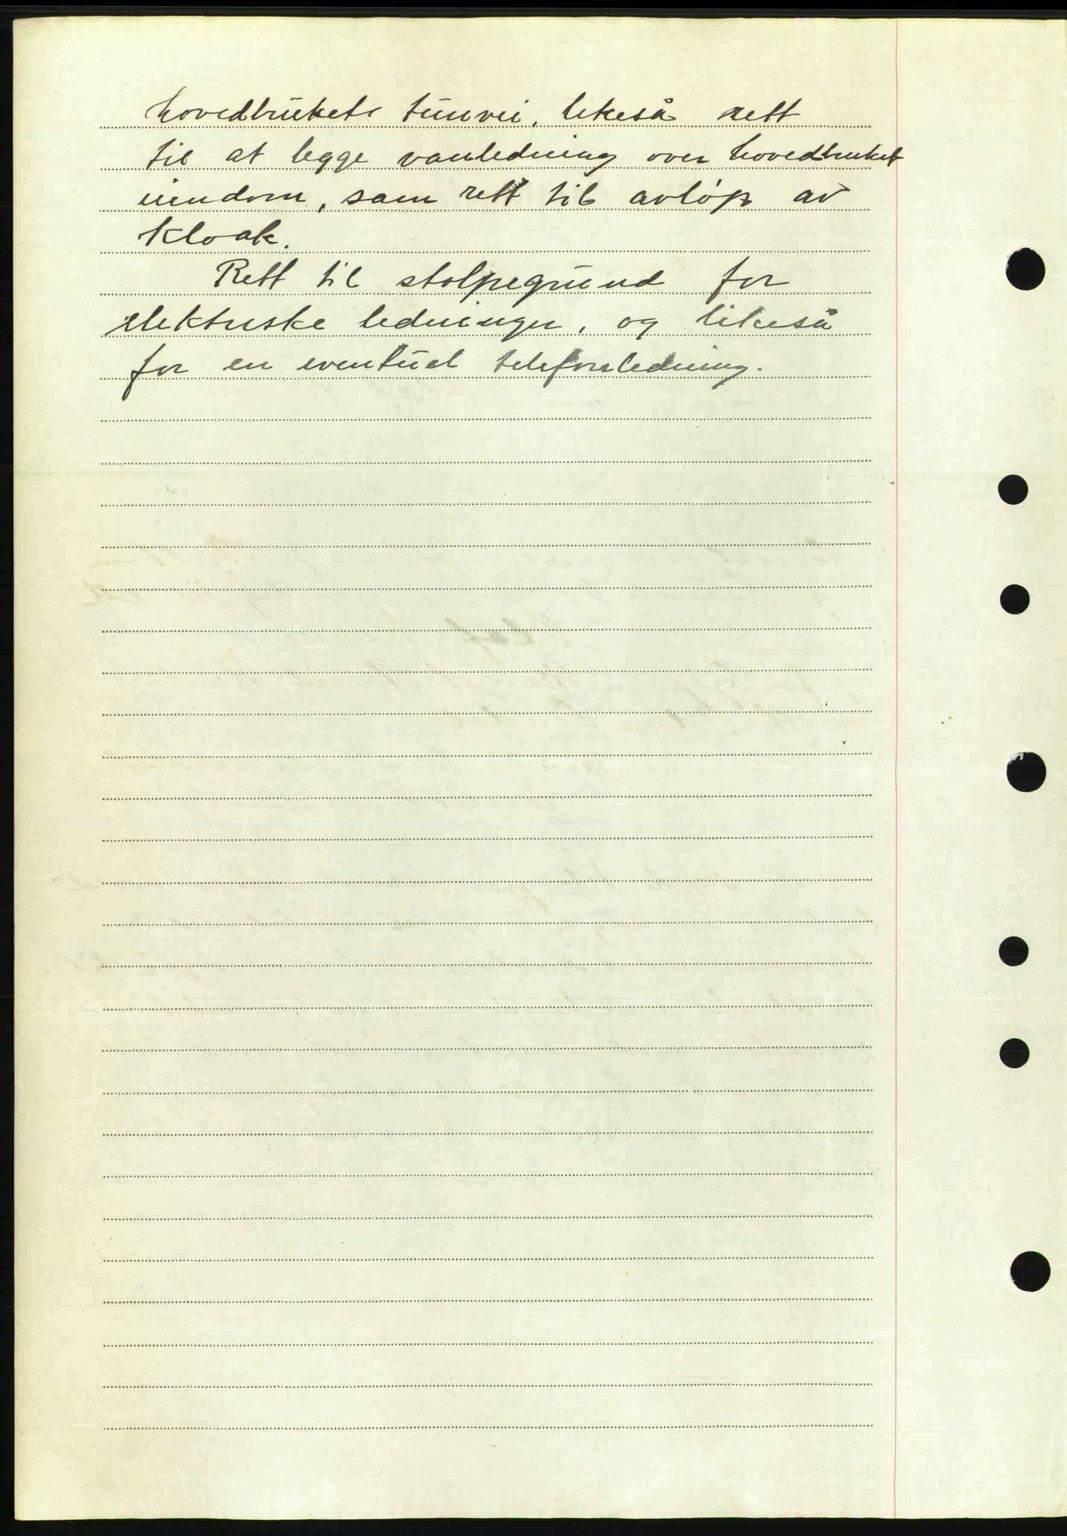 hovedbrukets tunvei, likeså rett
til at legge vanledning over hovedbruket
eiendom, sam rett til avløp av
kloak.
Rett til stolpegrund for
elektriske ledninger, og likeså
for en eventuel telefonledning.